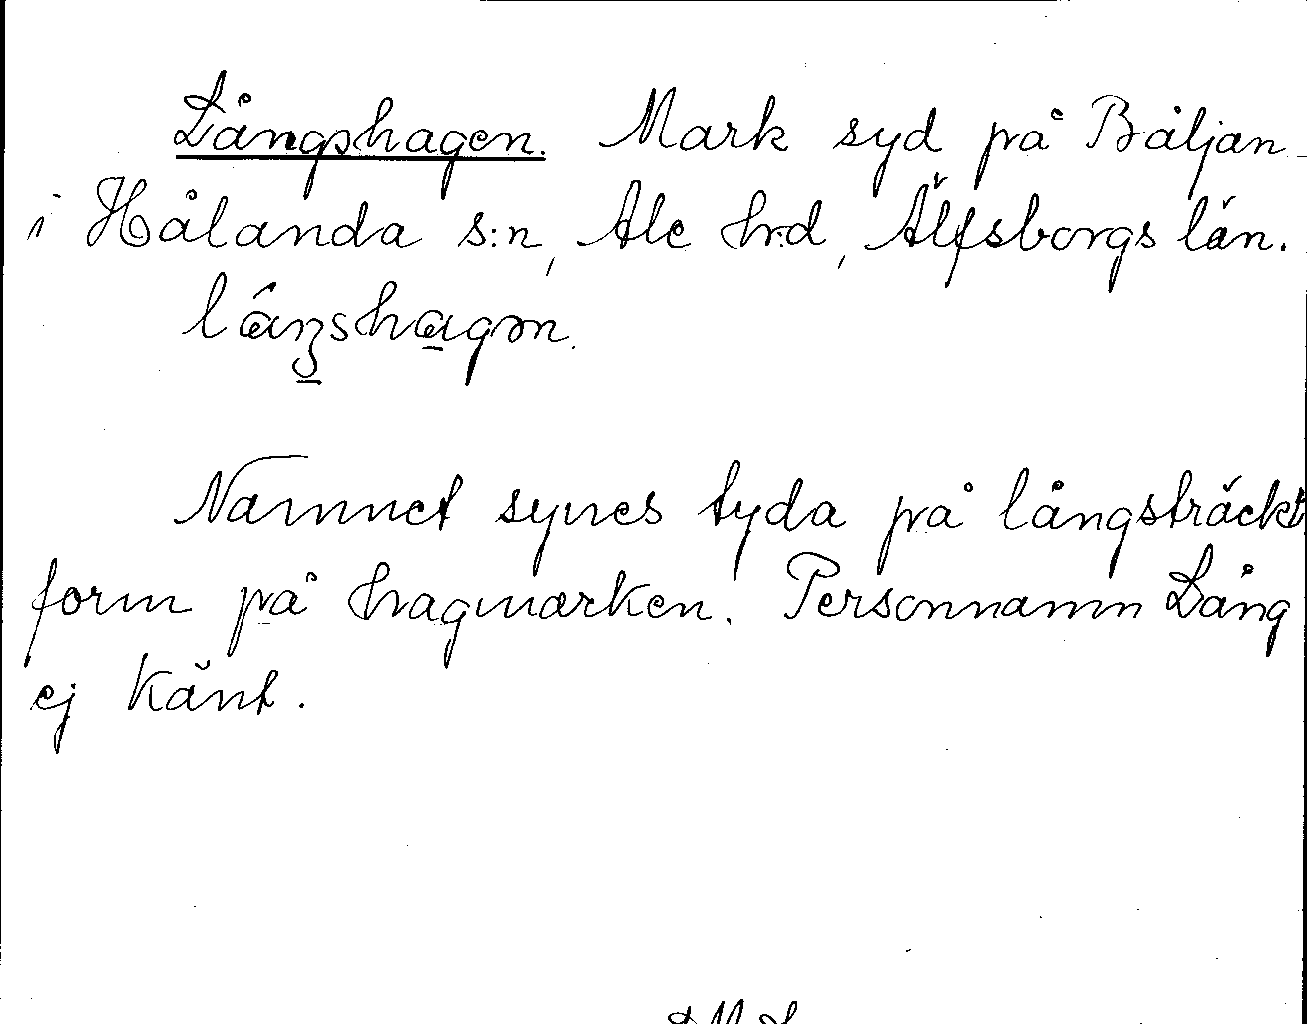 Långshagen. Mark syd på Båljan
i Hålanda s:n, Ale h:d, Älfsborgs län.
Namnet synes tyda på långsträckt
form på hagmarken. Personnamn Lång
ej känt.